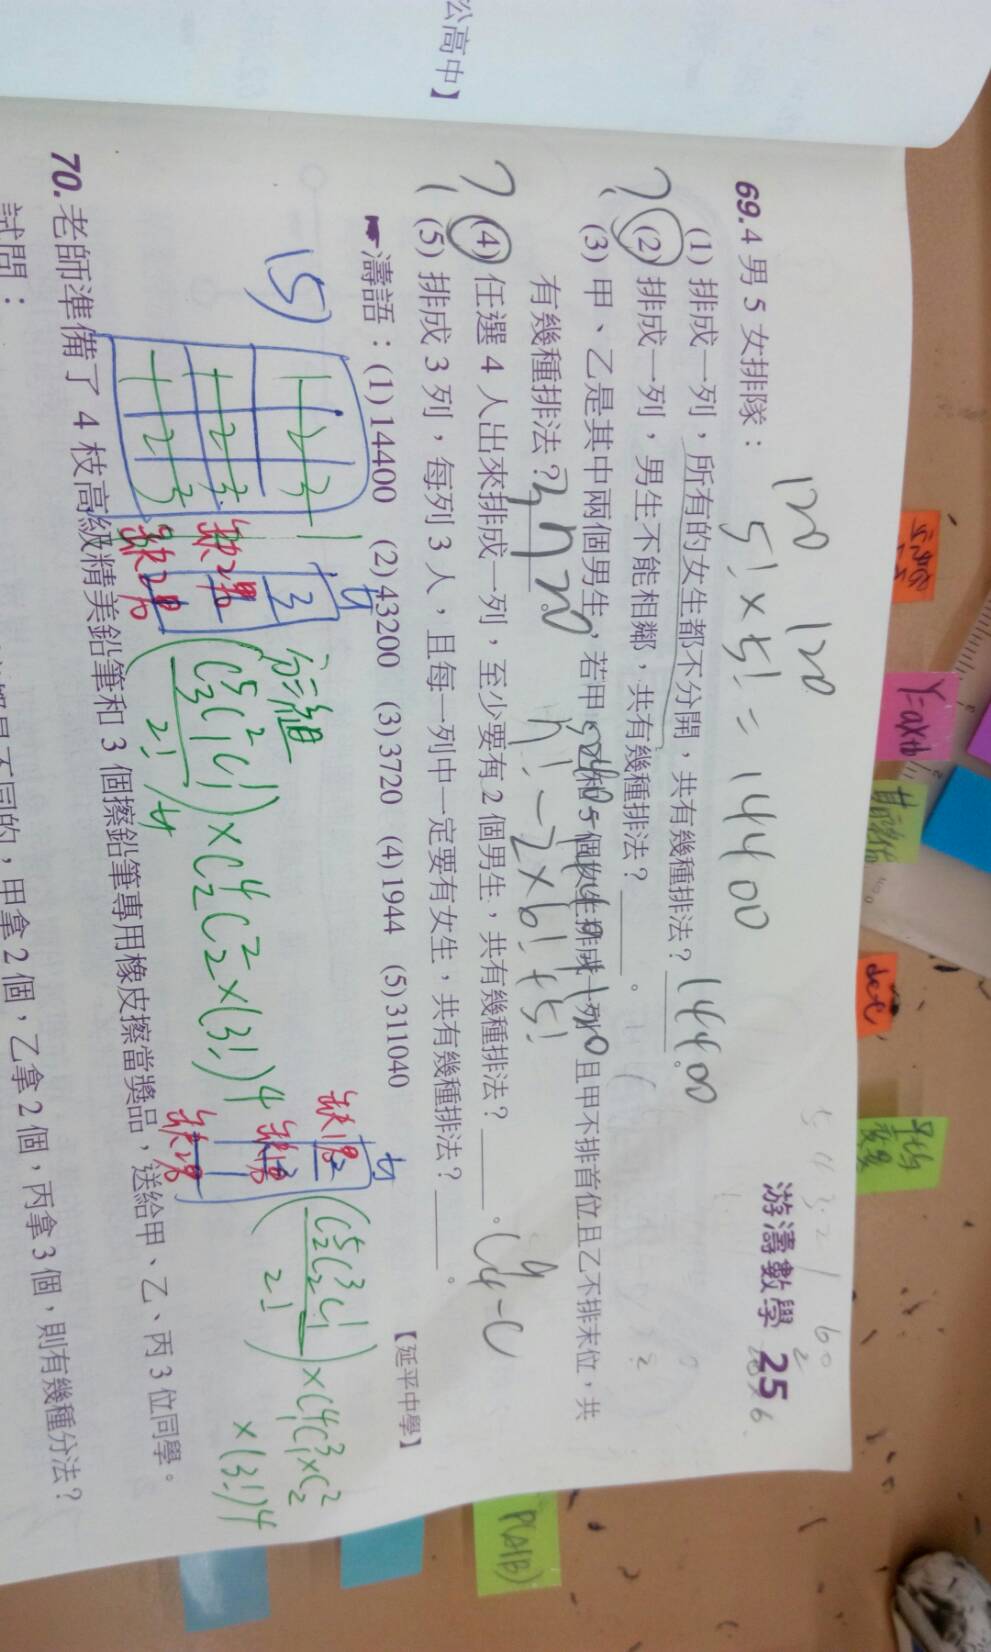 公高中】
游濤數學 25
120 120
5! × 5! = 14400
69.4 男 5 女排隊：
(1) 排成一列，所有的女生都不分開，共有幾種排法？14400
? (2) 排成一列，男生不能相鄰，共有幾種排法？
(3) 甲、乙是其中兩個男生，若甲 個女生排成一列 且甲不排首位且乙不排末位，共
有幾種排法？3720
7! - 2×6! + 5!
? (4) 任選 4 人出來排成一列，至少要有 2 個男生，共有幾種排法？
(5) 排成 3 列，每列 3 人，且每一列中一定要有女生，共有幾種排法？
【延平中學】
☛濤語：(1)14400 (2)43200 (3)3720 (4)1944 (5)311040
(5)
1 2 3
1 2 3
1 2 3
女
3
1 缺2男
缺2男
分組
(C⁵₃C²₁C¹₁ / 2!) × C⁴₂C²₂ × (3!)⁴
女
缺1男
缺1男
缺2男
(C⁵₂C³₂C¹₁ / 2!) × C⁴₁C³₁×C²₂
× (3!)⁴
70.老師準備了 4 枝高級精美鉛筆和 3 個擦鉛筆專用橡皮擦當獎品，送給甲、乙、丙 3 位同學。
試問：
不同的，甲拿 2 個，乙拿 2 個，丙拿 3 個，則有幾種分法？
Y=ax+b
det
平均
變異
P(A|B)